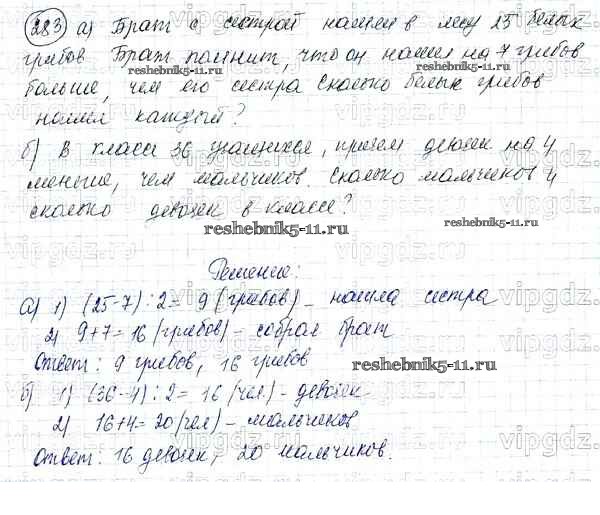 283 а) Брат с сестрой нашли в лесу 25 белых
грибов Брат помнит, что он нашел на 7 грибов
больше, чем его сестра Сколько белых грибов
нашли каждый?
б) В классе 36 учащихся, причем девочек на 4
меньше, чем мальчиков. Сколько мальчиков и
сколько девочек в классе?
reshebnik5-11.ru
reshebnik5-11.ru
Решение:
а) 1) (25-7):2= 9 (грибов) – нашла сестра
2) 9+7=16 (грибов) – собрал брат
Ответ: 9 грибов, 16 грибов
reshebnik5-11.ru
б) 1) (36-4):2= 16 (чел) – девочек
2) 16+4=20 (чел) – мальчиков
Ответ: 16 девочек, 20 мальчиков.
vipgdz.com